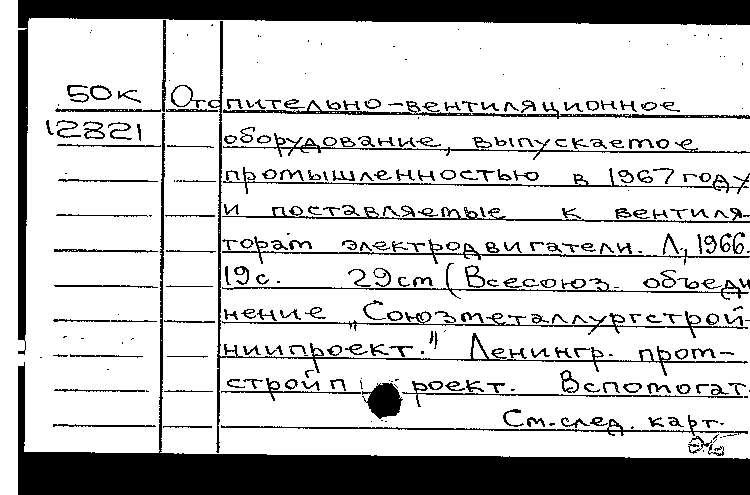 50К Отопительно-вентиляционное
12821 оборудование, выпускаемое
промышленностью в 1967 году
и поставляемые к вентиля-
торам электродвигатели. Л., 1966.
19с. 29см (Всесоюз. объеди
нение "Союзметаллургстрой-
ниипроект." Ленингр. пром-
стройпроект. Вспомогат.
См.след. карт.